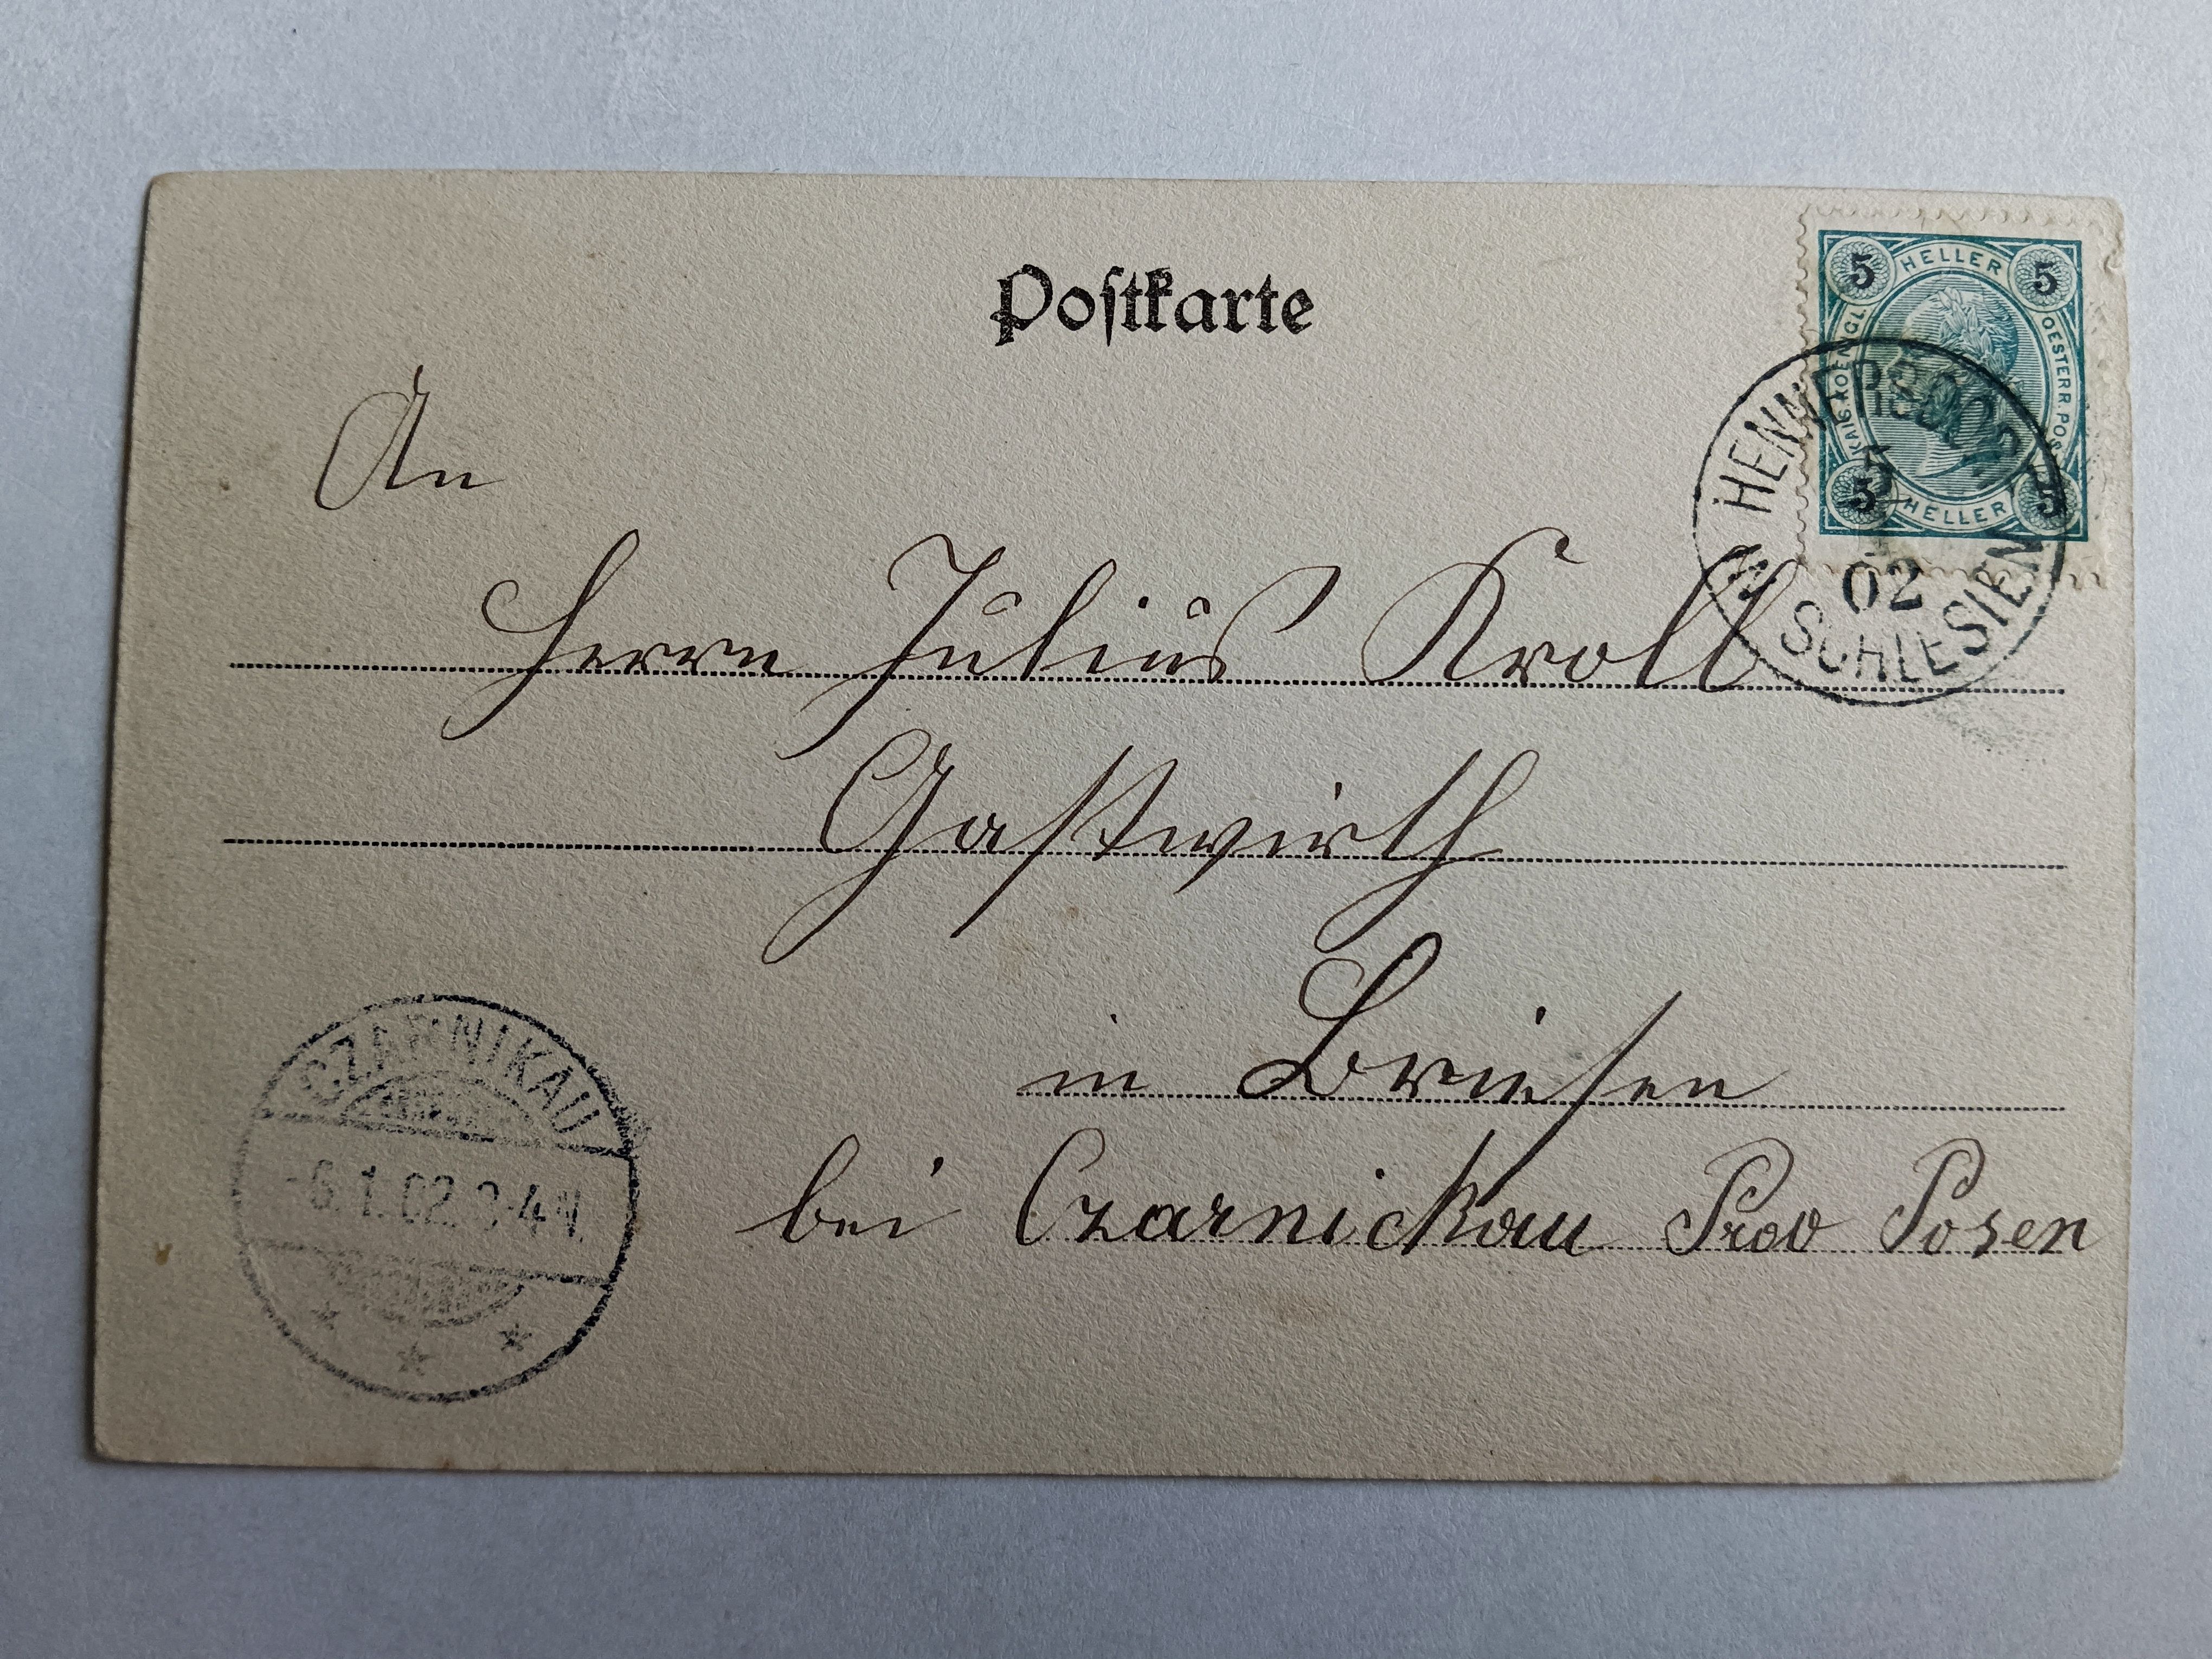 Postkarte
5 HELLER 5
KAIS. KOENIGL. OESTERR. POST
5 HELLER 5
HENNERSDORF
5
02
SCHLESIEN
An
Herrn Julius Kroll
Gastwirth
in Briesen
bei Czarnickau Prov Posen
CZARNIKAU
-6.1.02. 3-4 N.